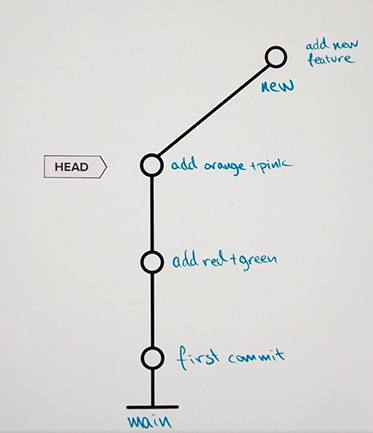 add new
feature
new
HEAD
add orange + pink
add red + green
first commit
main